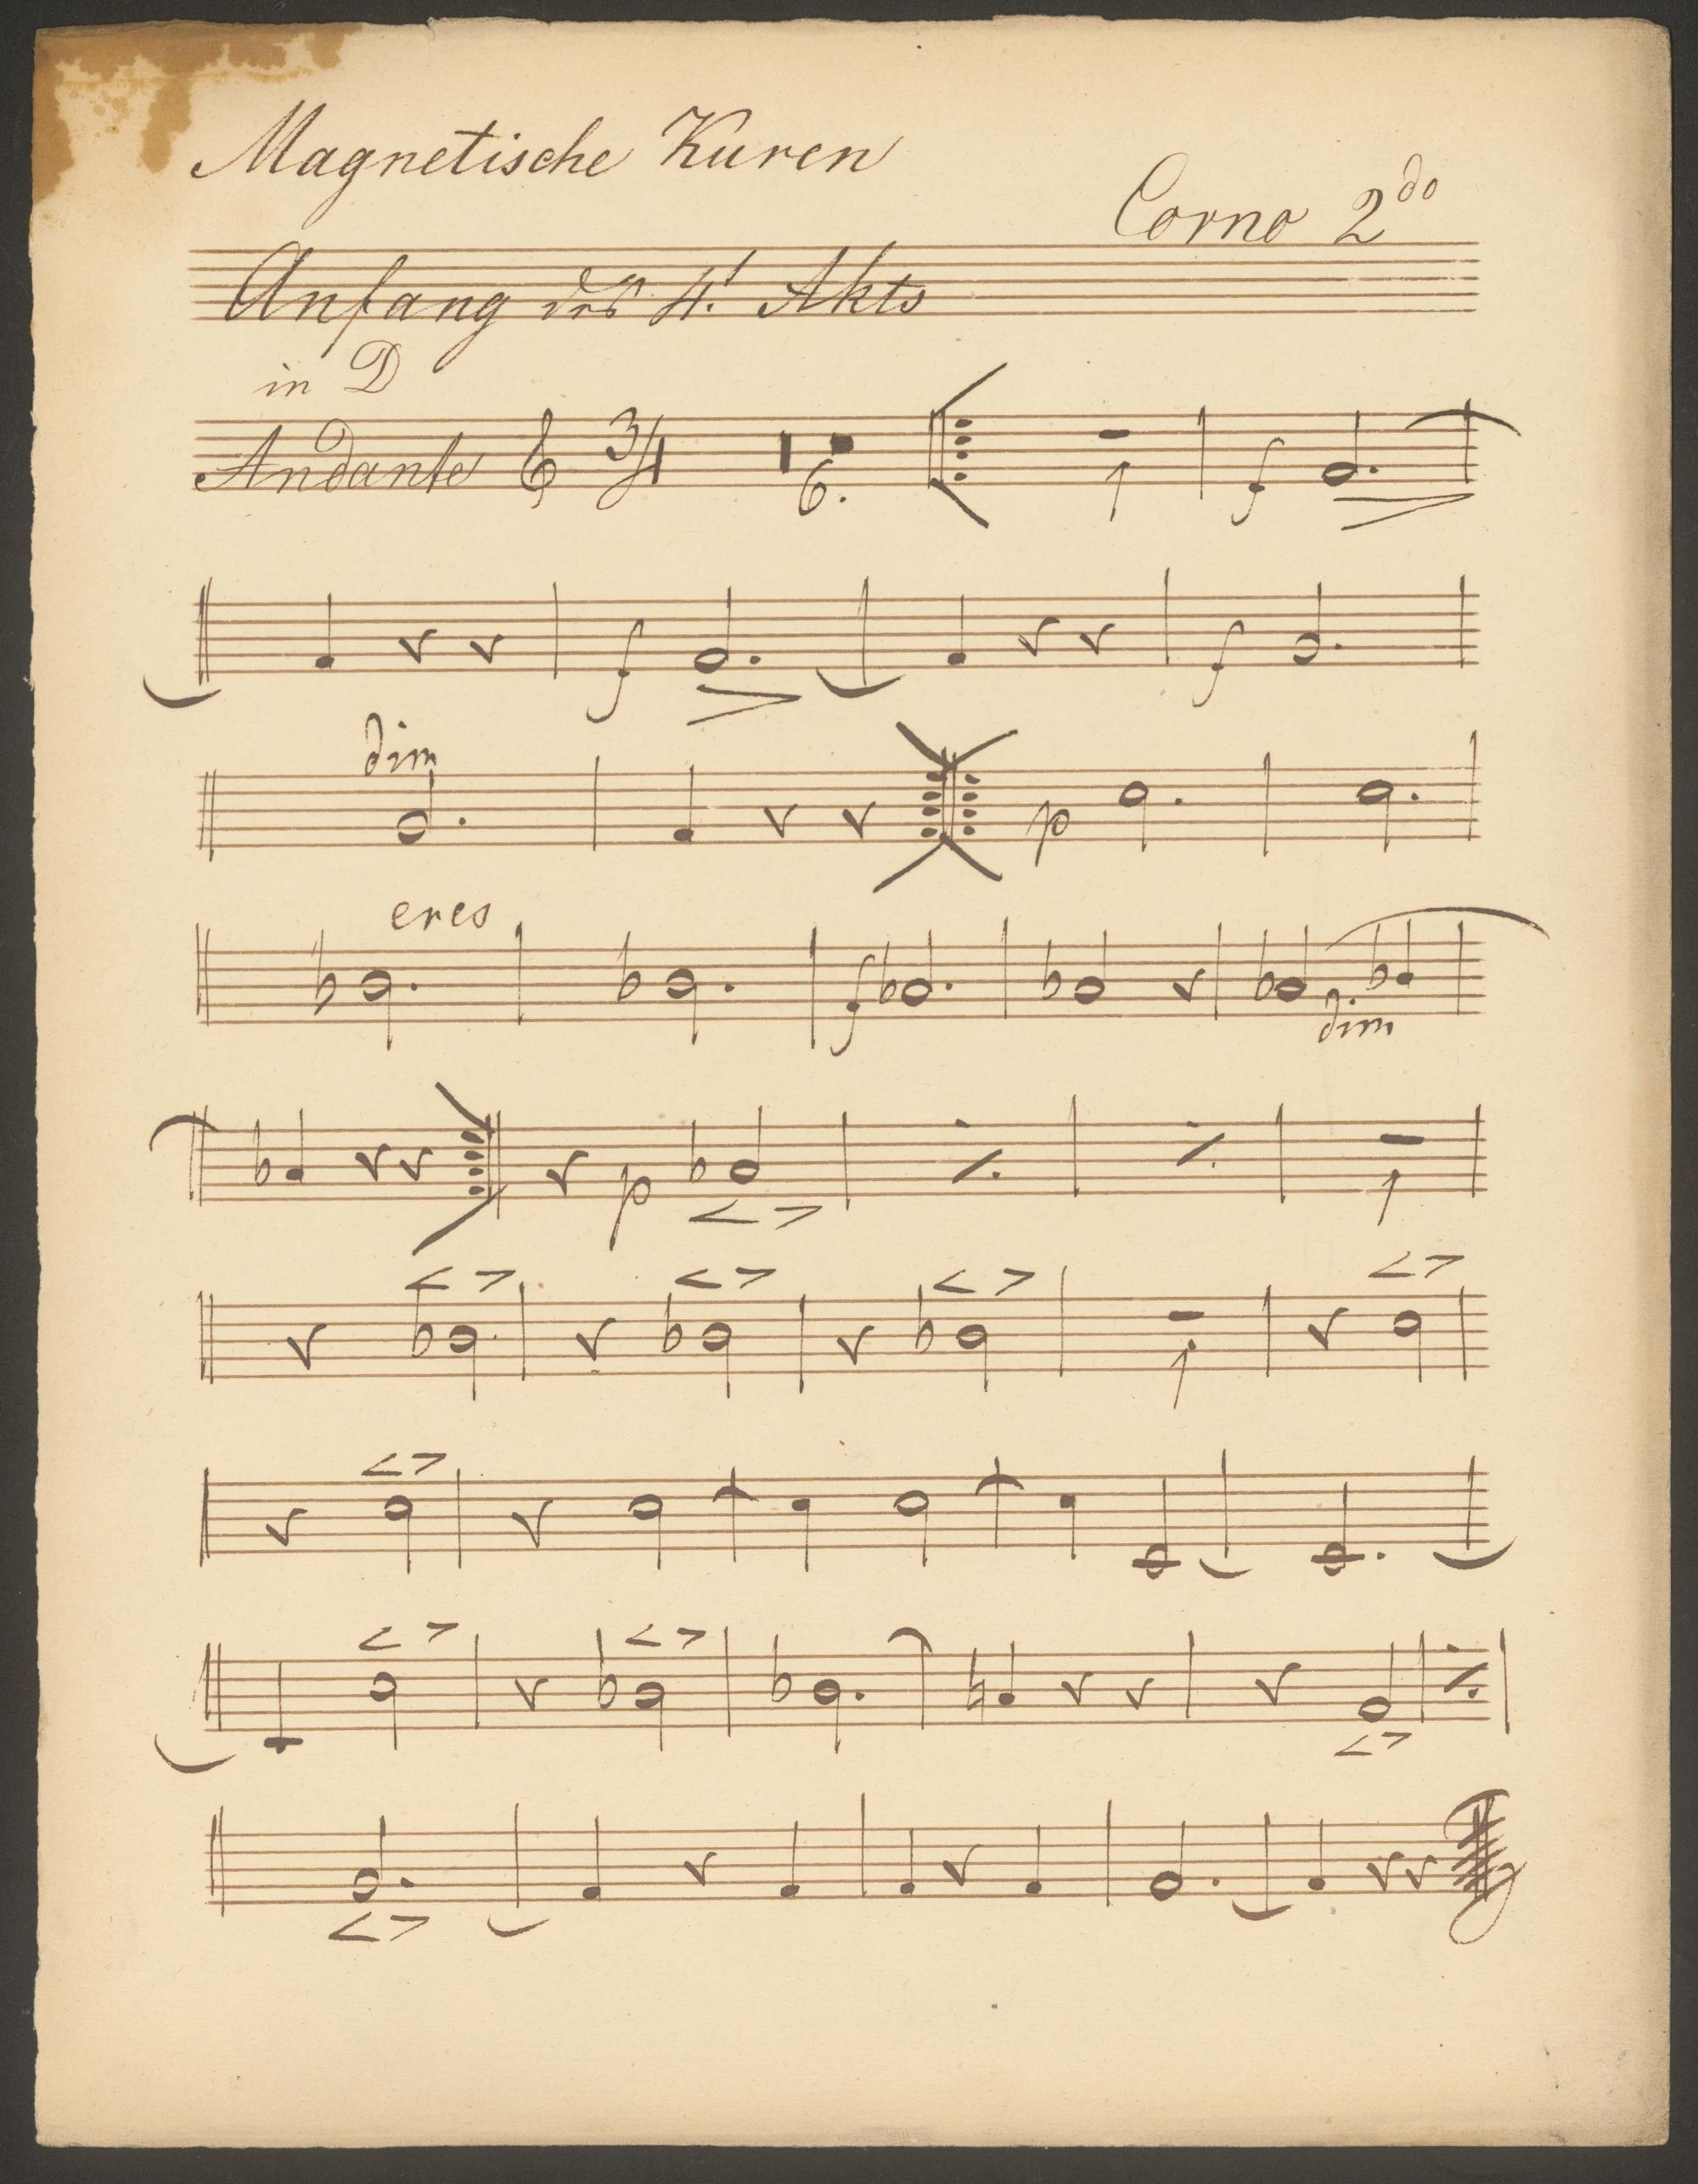 Magnetische Kuren
Corno 2do
Anfang des 4t Akts
in D
Andante 3/4 6. 1 f
f f
dim p
cres f dim
p 1
1